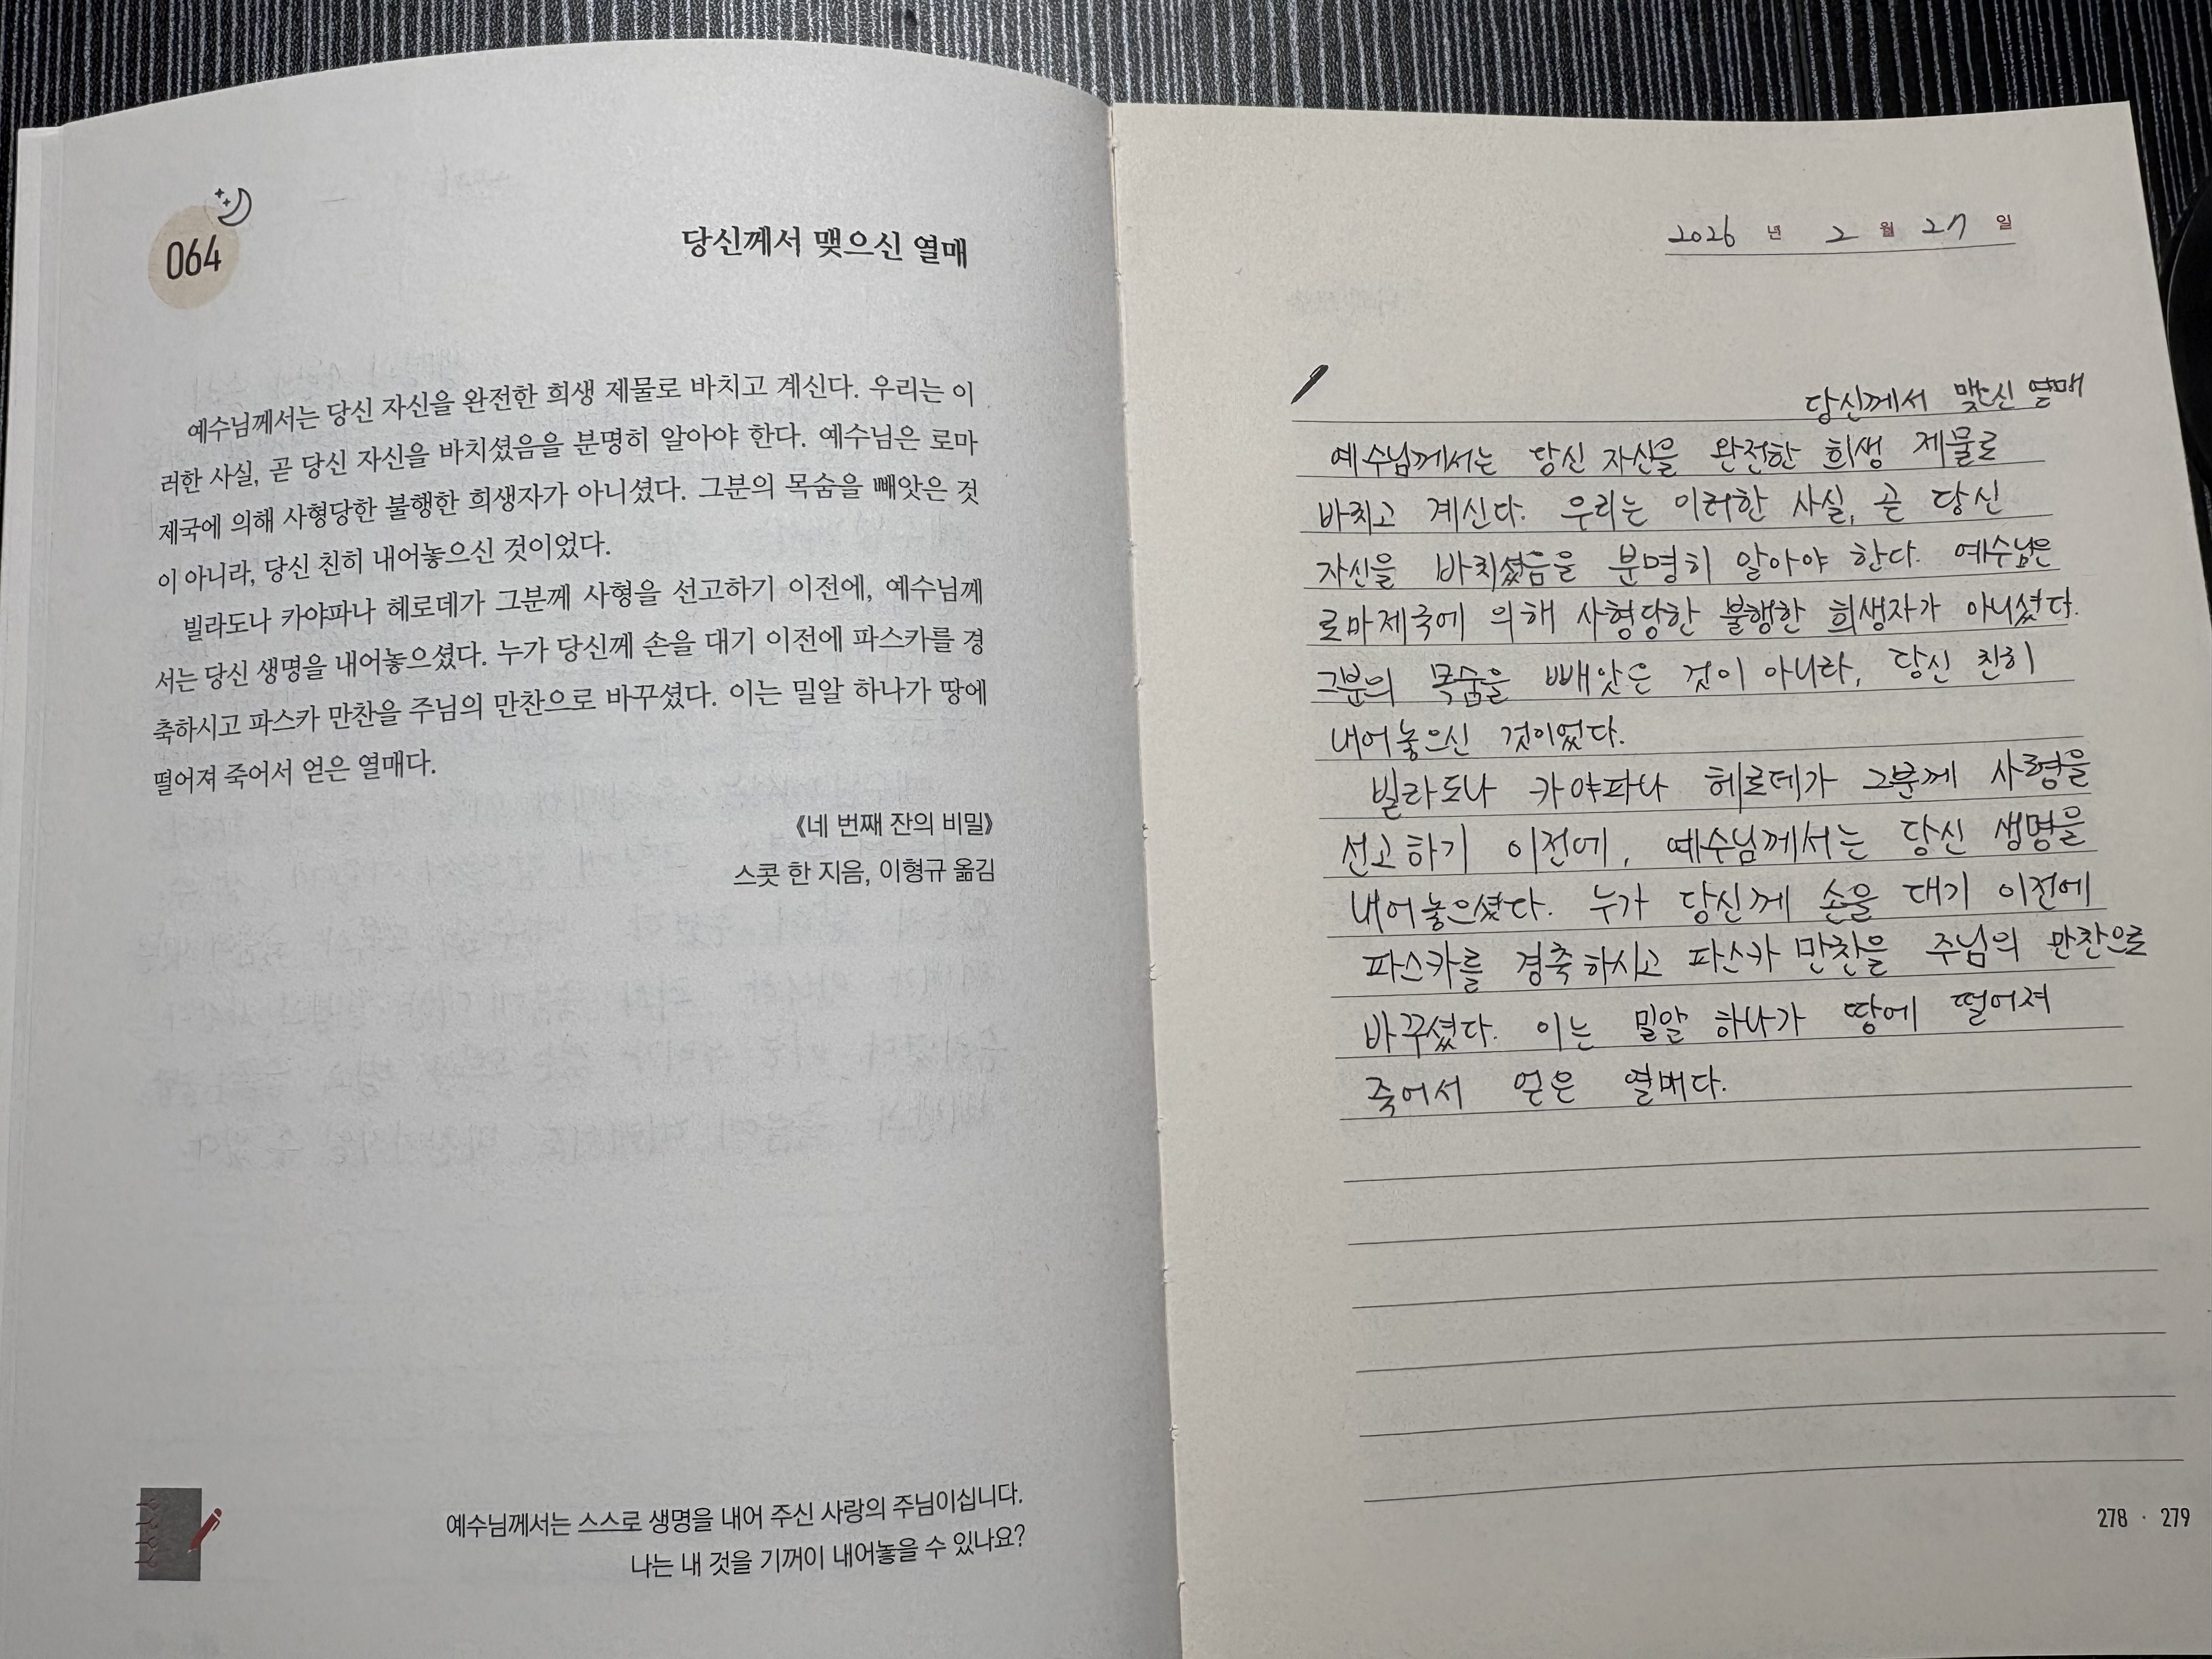 064
당신께서 맺으신 열매
예수님께서는 당신 자신을 완전한 희생 제물로 바치고 계신다. 우리는 이
러한 사실, 곧 당신 자신을 바치셨음을 분명히 알아야 한다. 예수님은 로마
제국에 의해 사형당한 불행한 희생자가 아니셨다. 그분의 목숨을 빼앗은 것
이 아니라, 당신 친히 내어놓으신 것이었다.
빌라도나 카야파나 헤로데가 그분께 사형을 선고하기 이전에, 예수님께
서는 당신 생명을 내어놓으셨다. 누가 당신께 손을 대기 이전에 파스카를 경
축하시고 파스카 만찬을 주님의 만찬으로 바꾸셨다. 이는 밀알 하나가 땅에
떨어져 죽어서 얻은 열매다.
《네 번째 잔의 비밀》
스콧 한 지음, 이형규 옮김
예수님께서는 스스로 생명을 내어 주신 사랑의 주님이십니다.
나는 내 것을 기꺼이 내어놓을 수 있나요?
2026 년 2 월 27 일
당신께서 맺으신 열매
예수님께서는 당신 자신을 완전한 희생 제물로
바치고 계신다. 우리는 이러한 사실, 곧 당신
자신을 바치셨음을 분명히 알아야 한다. 예수님은
로마제국에 의해 사형당한 불행한 희생자가 아니셨다.
그분의 목숨을 빼앗은 것이 아니라, 당신 친히
내어놓으신 것이었다.
빌라도나 카야파나 헤로데가 그분께 사형을
선고하기 이전에, 예수님께서는 당신 생명을
내어놓으셨다. 누가 당신께 손을 대기 이전에
파스카를 경축하시고 파스카 만찬을 주님의 만찬으로
바꾸셨다. 이는 밀알 하나가 땅에 떨어져
죽어서 얻은 열매다.
278 · 279